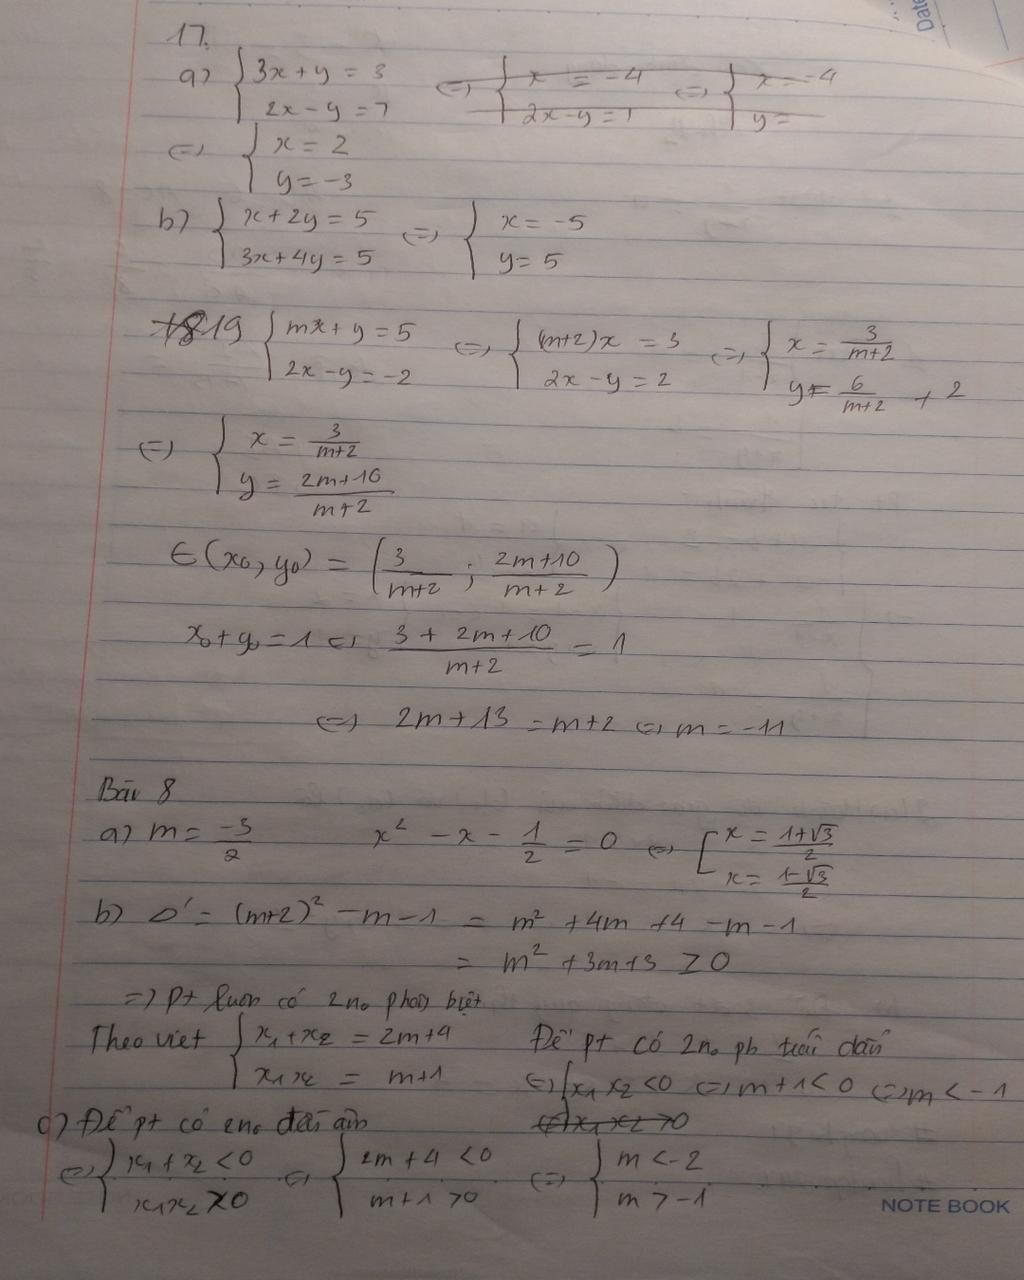 Date
17.
a) { 3x + y = 3 <=> { x = -4 <=> { x = -4
2x - y = 7 2x - y = 7 y =
<=> { x = 2
y = -3
b) { x + 2y = 5 <=> { x = -5
3x + 4y = 5 y = 5
18 19 { mx + y = 5 <=> { (m+2)x = 3 <=> { x = 3/(m+2)
2x - y = -2 2x - y = 2 y = 6/(m+2) + 2
<=> { x = 3/(m+2)
y = (2m+10)/(m+2)
∈ (x₀, y₀) = ( 3/(m+2) ; (2m+10)/(m+2) )
x₀ + y₀ = 1 <=> (3 + 2m + 10)/(m+2) = 1
<=> 2m + 13 = m + 2 <=> m = -11
Bài 8
a) m = -3/2 x² - x - 1/2 = 0 <=> [ x = (1+√3)/2
x = (1-√3)/2
b) Δ' = (m+2)² - m - 1 = m² + 4m + 4 - m - 1
= m² + 3m + 3 ≥ 0
=> Pt luôn có 2 no phân biệt
Theo viet { x₁ + x₂ = 2m+4 Để pt có 2 no pb trái dấu
x₁x₂ = m+1 <=> { x₁x₂ < 0 <=> m + 1 < 0 <=> m < -1
c) Để pt có 2 no đều âm <=> { x₁x₂ > 0
<=> { x₁ + x₂ < 0 <=> { 2m + 4 < 0 <=> { m < -2
x₁x₂ > 0 m + 1 > 0 m > -1
NOTE BOOK